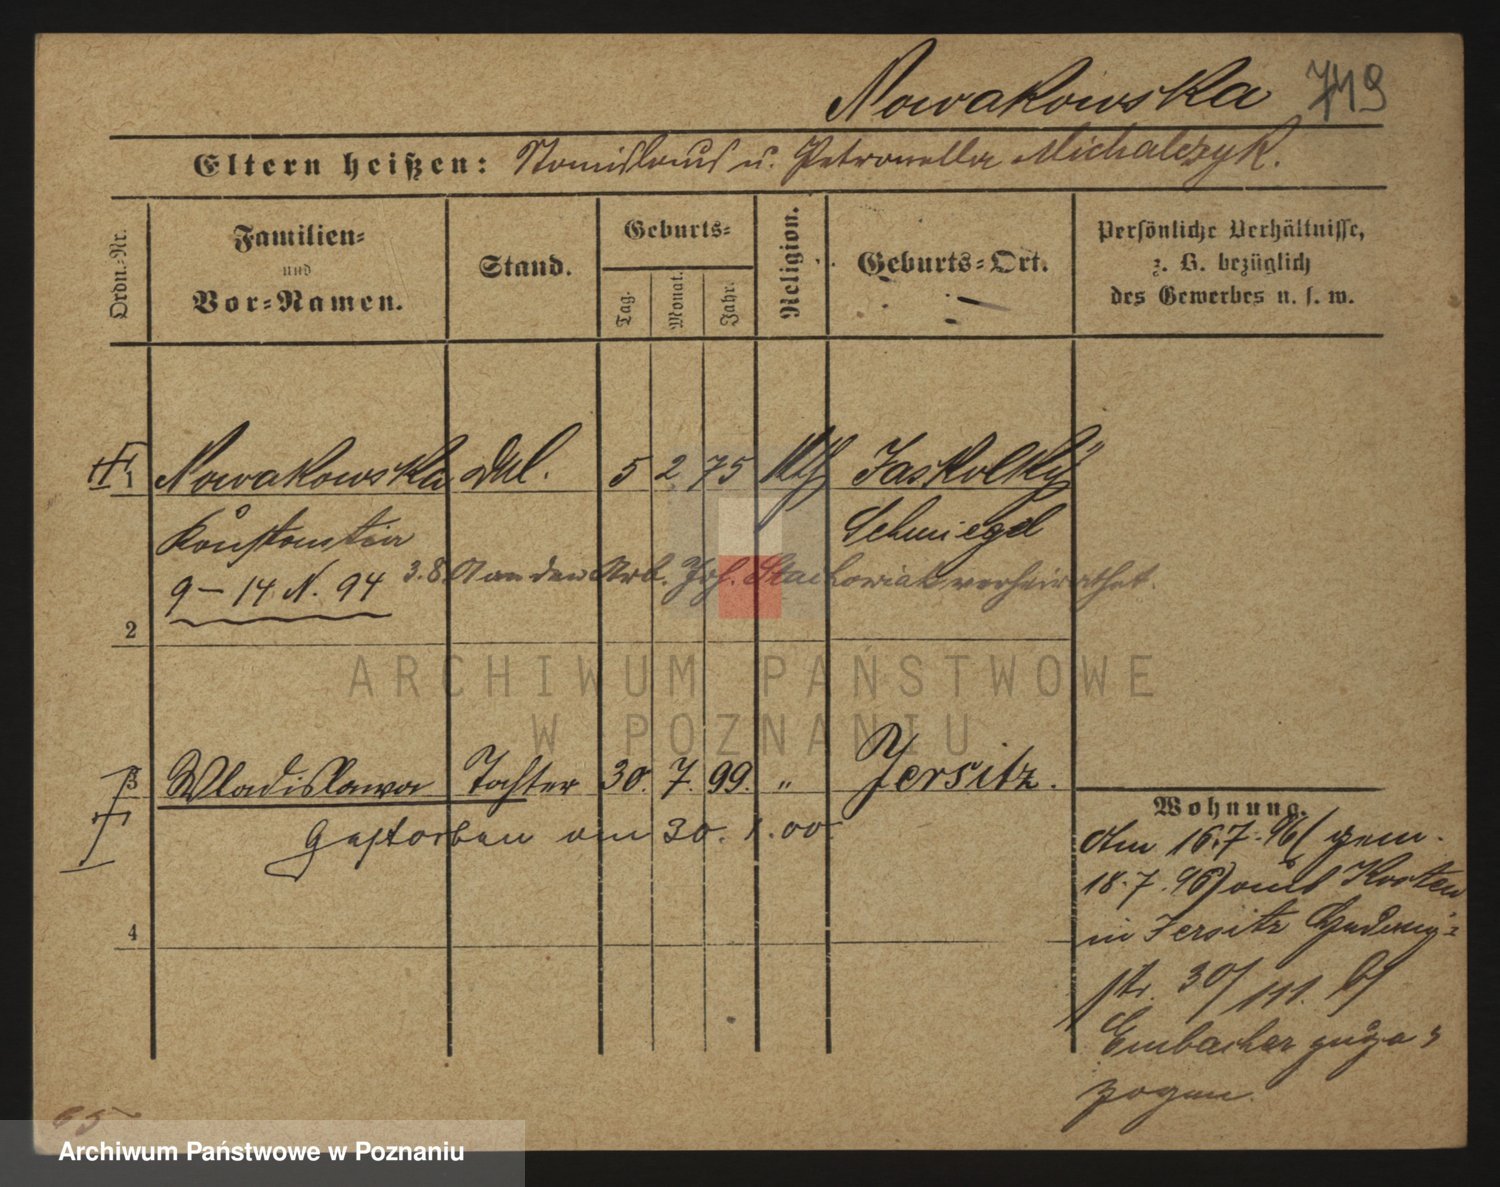 Nowakowska 749
Eltern heißen: Stanislaus u. Petronella Michalczyk.
Ordn.-Nr.
Familien-
und
Vor-Namen.
Stand.
Geburts-
Tag.
Monat.
Jahr.
Religion.
Geburts-Ort.
Persönliche Verhältnisse,
z. B. bezüglich
des Gewerbes u. s. w.
1 Nowakowska 5 2 75
Schmiegel
Konstantia
9 – 14. N. 94
an den Arb. Joh. Stachowiak verheirathet.
2
3 Wladislawa Tochter 30. 7. 99. " Jersitz.
Gestorben am 30. 1. 00.
4
Wohnung.
Am 16.7.96 ( gem.
18.7.96) aus Kosten
in Jersitz Hedwig-
str. 30/III. b/
Embacher zuge-
zogen.
65
ARCHIWUM PAŃSTWOWE
W POZNANIU
Archiwum Państwowe w Poznaniu